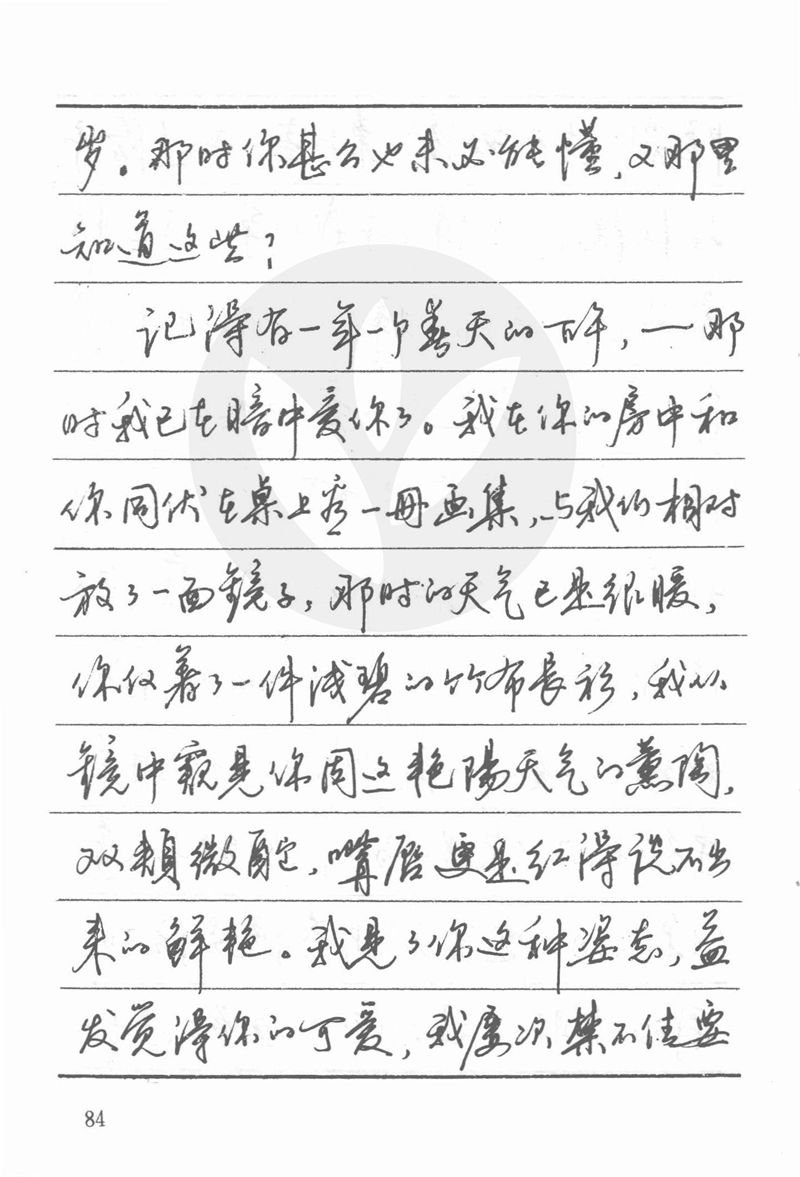 岁。那时你甚么也未必能懂，又那里
知道这些？
记得有一年一个春天的下午，一那
时我已在暗中爱你了。我在你的房中和
你同伏在桌上看一册画集，与我们相对
放了一面镜子，那时的天气已是很暖，
你仅着了一件浅碧的竹布长衫，我从
镜中窥见你因这艳阳天气的薰陶，
双颊微酡，嘴唇更是红得说不出
来的鲜艳。我见了你这种姿态，益
发觉得你的可爱，我屡次禁不住要
84